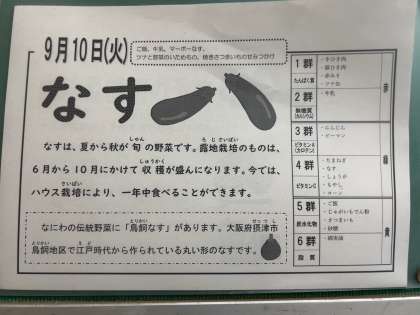 9月10日(火)
ご飯、牛乳、マーボーなす、
ツナと野菜のいためもの、焼きさつまいものはちみつかけ
なす
なすは、夏から秋が旬の野菜です。露地栽培のものは、
6月から10月にかけて収穫が盛んになります。今では、
ハウス栽培により、一年中食べることができます。
なにわの伝統野菜に「鳥飼なす」があります。大阪府摂津市
鳥飼地区で江戸時代から作られている丸い形のなすです。
1群
たんぱく質
・牛ひき肉
・豚ひき肉
・赤みそ
・ツナ缶
2群
無機質
(カルシウム)
・牛乳
赤
3群
ビタミンA
(カロテン)
・にんじん
・ピーマン
4群
ビタミンC
・たまねぎ
・なす
・しょうが
・もやし
・コーン
緑
5群
炭水化物
・ご飯
・じゃがいもでん粉
・さつまいも
・砂糖
6群
脂質
・綿実油
黄